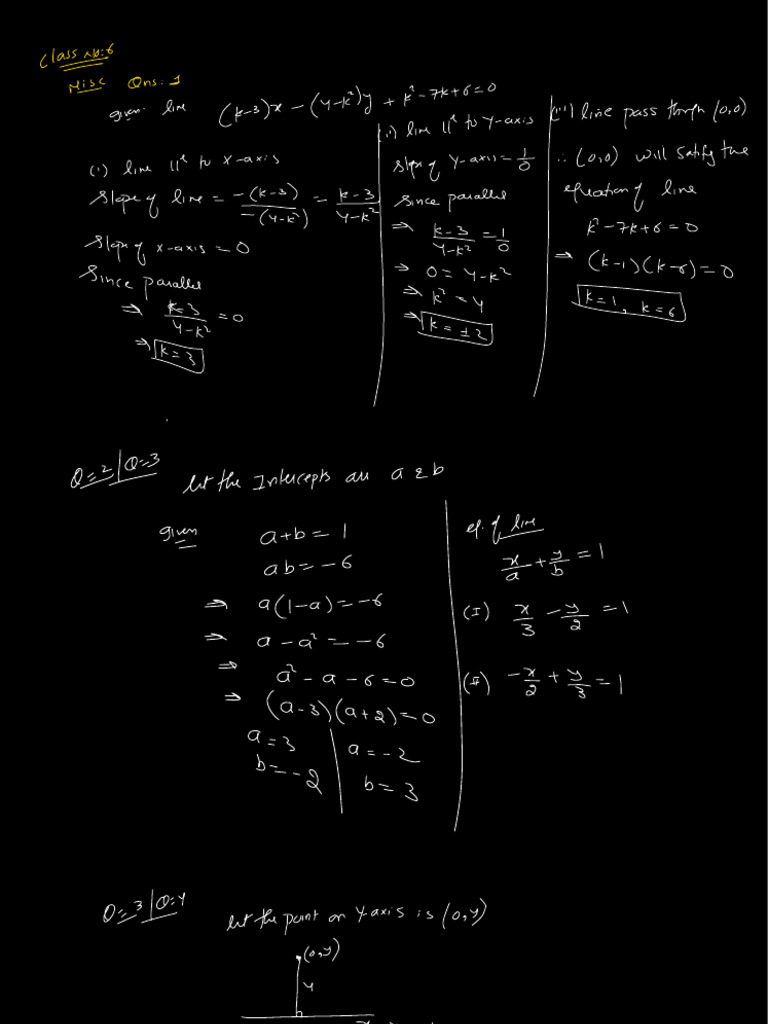 Class No: 6
Misc Qns: 1
given line (k-3)x - (4-k²)y + k² - 7k + 6 = 0
(i) line ||ˡ to x-axis
Slope of line = -(k-3)/-(4-k²) = k-3/4-k²
Slope of x-axis = 0
Since parallel
⇒ k-3/4-k² = 0
⇒ k = 3
(ii) line ||ˡ to y-axis
Slope of y-axis = 1/0
Since parallel
⇒ k-3/4-k² = 1/0
⇒ 0 = 4-k²
⇒ k² = 4
⇒ k = ±2
(iii) line pass through (0,0)
∴ (0,0) will satisfy the
equation of line
k² - 7k + 6 = 0
⇒ (k-1)(k-6) = 0
k = 1, k = 6
Q=2 | Q=3
let the Intercepts are a & b
given a+b = 1
ab = -6
⇒ a(1-a) = -6
⇒ a - a² = -6
⇒ a² - a - 6 = 0
⇒ (a-3)(a+2) = 0
a = 3 | a = -2
b = -2 | b = 3
eq. of line
x/a + y/b = 1
(I) x/3 - y/2 = 1
(II) -x/2 + y/3 = 1
Q=3 | Q=4
let the point on y axis is (0,y)
(0,y)
4